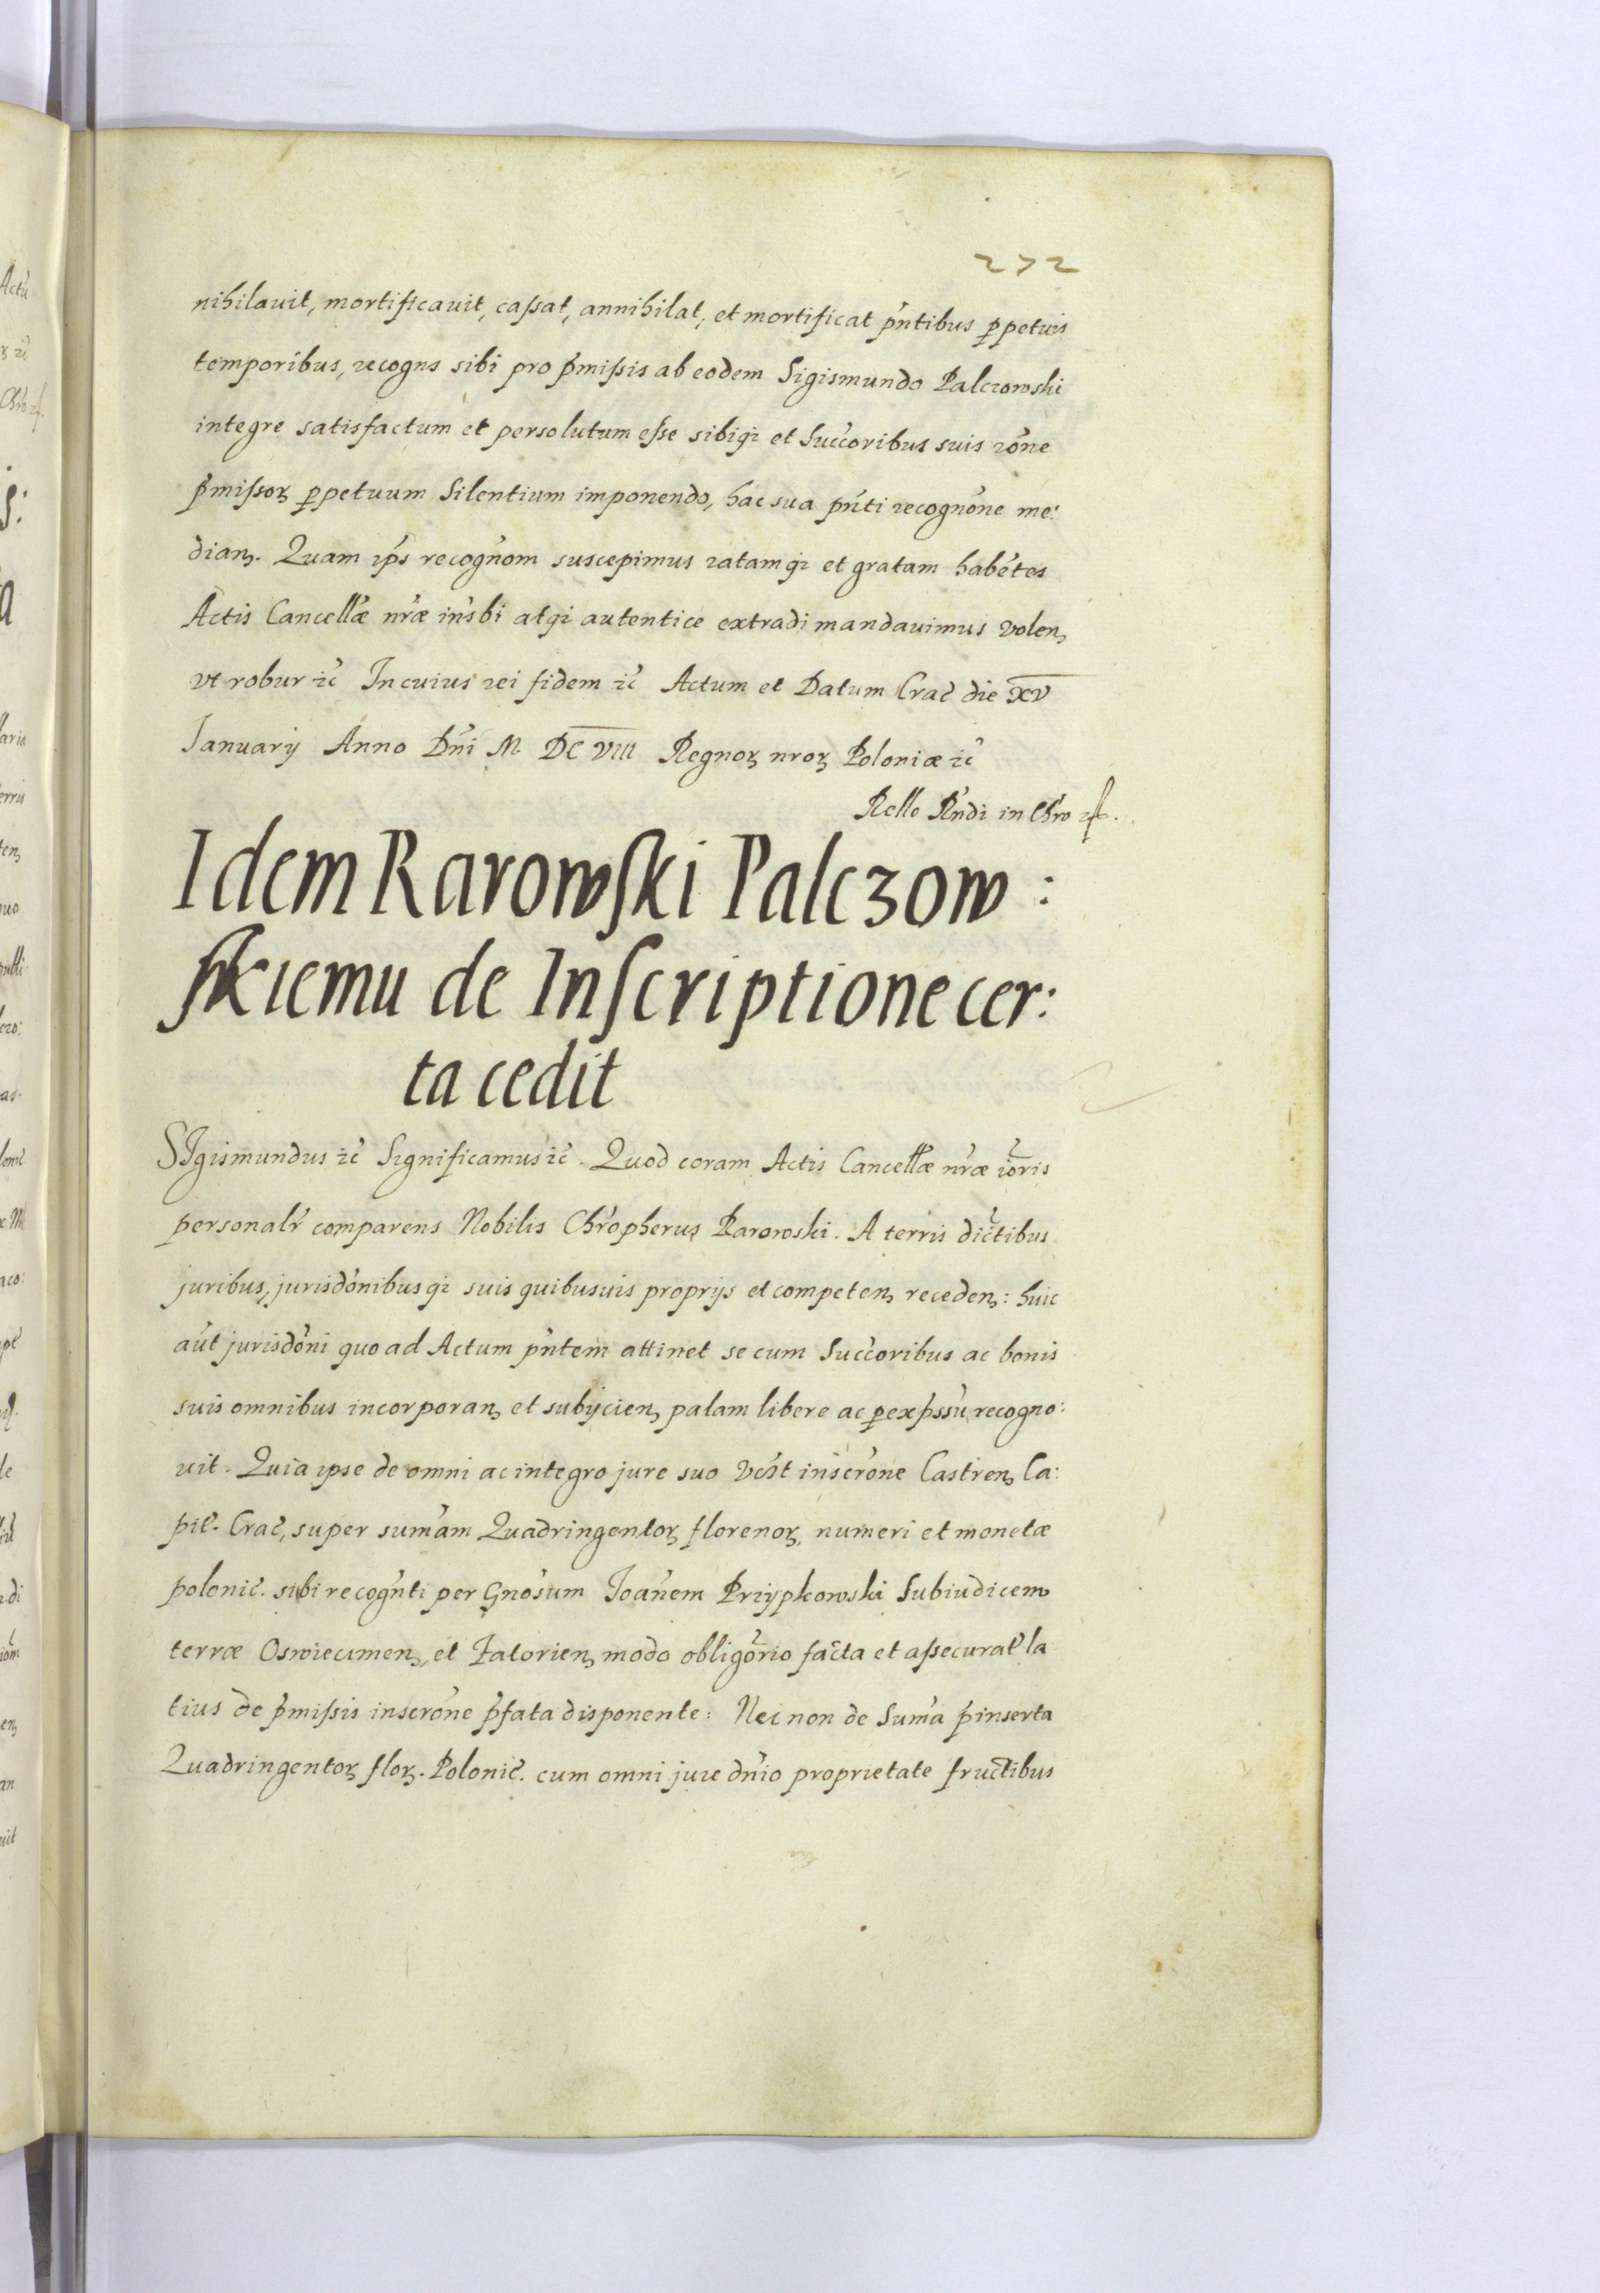 272
nihilauit, mortificauit, caſsat, annihilat, et mortificat pńtibus ꝑpetuis
temporibus, recogns sibi pro p̃miſsis ab eodem Sigismundo Palczowski
integre satisfactum et persolutum eſse sibiq; et Succ̃oribus suis rõne
p̃miſsoꝝ ꝑpetuum Silentium imponendo, hac sua pñti recognõne me:
dianꝫ. Quam ip̃s recognõm suscepimus ratamq; et gratam habẽtes
Actis Cancellæ nr̃æ insbi atq; autentice extradi mandauimus volenꝫ
vt robur zc̃ In cuius rei fidem zc̃ Actum et Datum Crac̃ die XV
Ianuarij Anno Dñi M DC VIII Regnoꝝ nroꝝ Poloniæ zc̃
Rello Rńdi in Chr̃o
Idem Rarowſki Palczow:
ſkiemu de Inſcriptione cer:
ta cedit
SIgismundus zc̃ Significamus zc̃. Quod coram Actis Cancellæ nr̃æ
personalr̃ comparens Nobilis Chr̃opherus Rarowski. A terris dic̃tibus
juribus, jurisdõnibusq; suis quibusuis proprijs et competenꝫ recedenꝫ: huic
aũt jurisdõni quo ad Actum pñtem attinet se cum Succ̃oribus ac bonis
suis omnibus incorporanꝫ et subijcienꝫ palam libere ac ꝑ exp̃ssũ recogno:
uit. Quia ipse de omni ac integro jure suo inscrõne Castrenꝫ Ca:
pit̃. Crac̃, super sum̃am Quadringentoꝝ florenoꝝ, numeri et monetæ
polonic̃. sibi recogñti per Gnõsum Joañem Przypkowski Subiudicem
terræ Oswiecimenꝫ, et Zatorienꝫ modo obligõrio facta et aſsecurat̃ la
tius de p̃miſsis inscrõne p̃fata disponente: Nec non de Sum̃a p̃inserta
Quadringentoꝝ floꝝ. Polonic̃. cum omni jure dñio proprietate fructibus